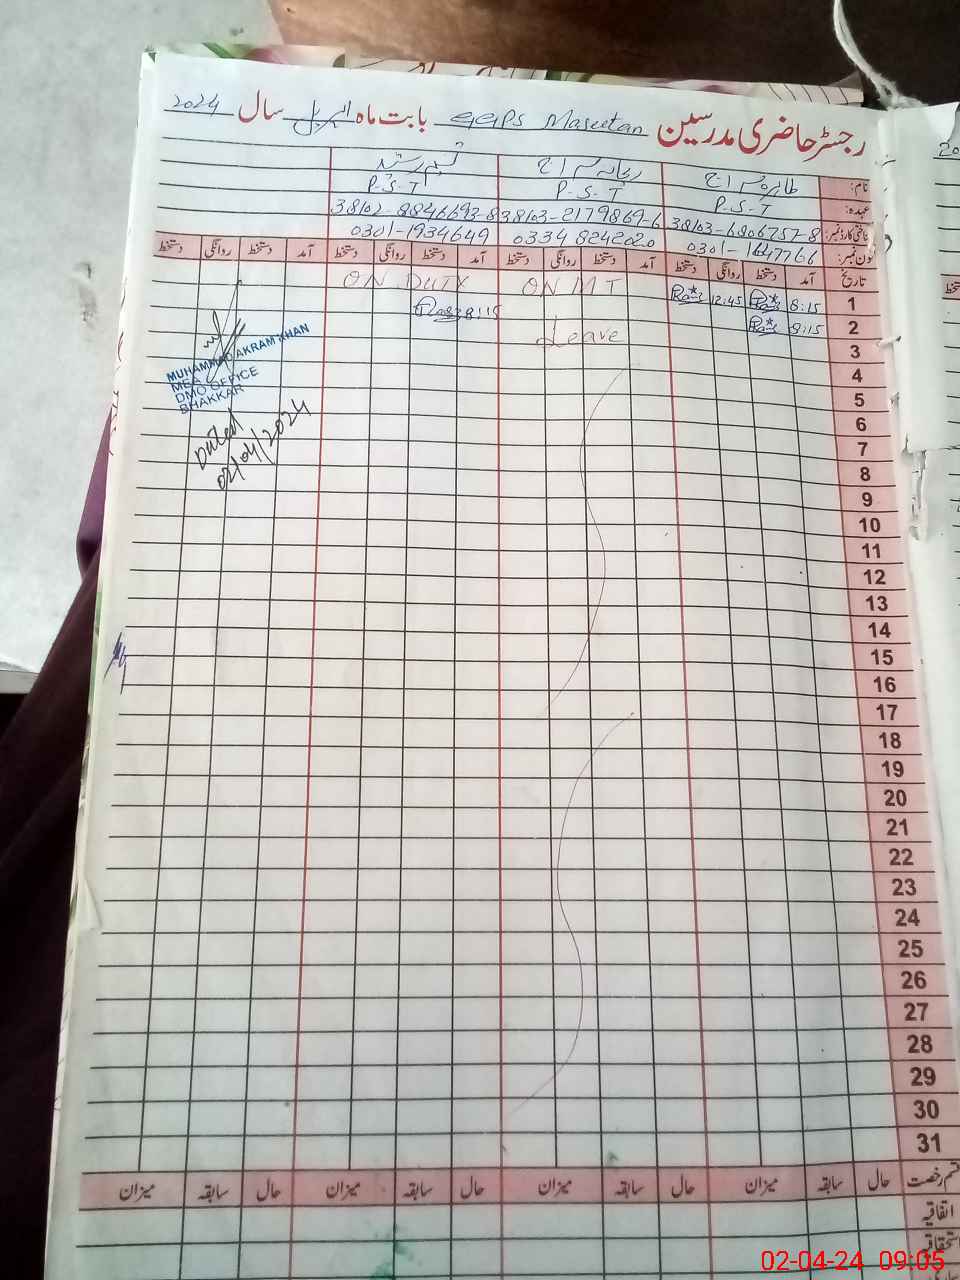 رجسٹر حاضری مدرسین GGPS Maseetan بابت ماہ اپریل سال 2024
نام: طاہرہ سراج ریحانہ سراج
عہدہ: P-S-T P-S-T P-S-T
شناختی کارڈ نمبر: 38103-6806757-8 38103-2179869-6 38102-8846693-8
فون نمبر: 0301-1647766 0334 8242020 0301-1934649
تاریخ آمد دستخط روانگی دستخط آمد دستخط روانگی دستخط آمد دستخط روانگی دستخط آمد دستخط روانگی دستخط
1 8:15 12:45 ON MT ON DUTY
2 8:15 Leave 8:15
3
4
5
6
7
8
9
10
11
12
13
14
15
16
17
18
19
20
21
22
23
24
25
26
27
28
29
30
31
MUHAMMAD AKRAM KHAN
MEA
DMO OFFICE
BHAKKAR
Dated
02/04/2024
قسم رخصت حال سابقہ میزان حال سابقہ میزان حال سابقہ میزان حال سابقہ میزان
اتفاقیہ
استحقاقی
02-04-24 09:05